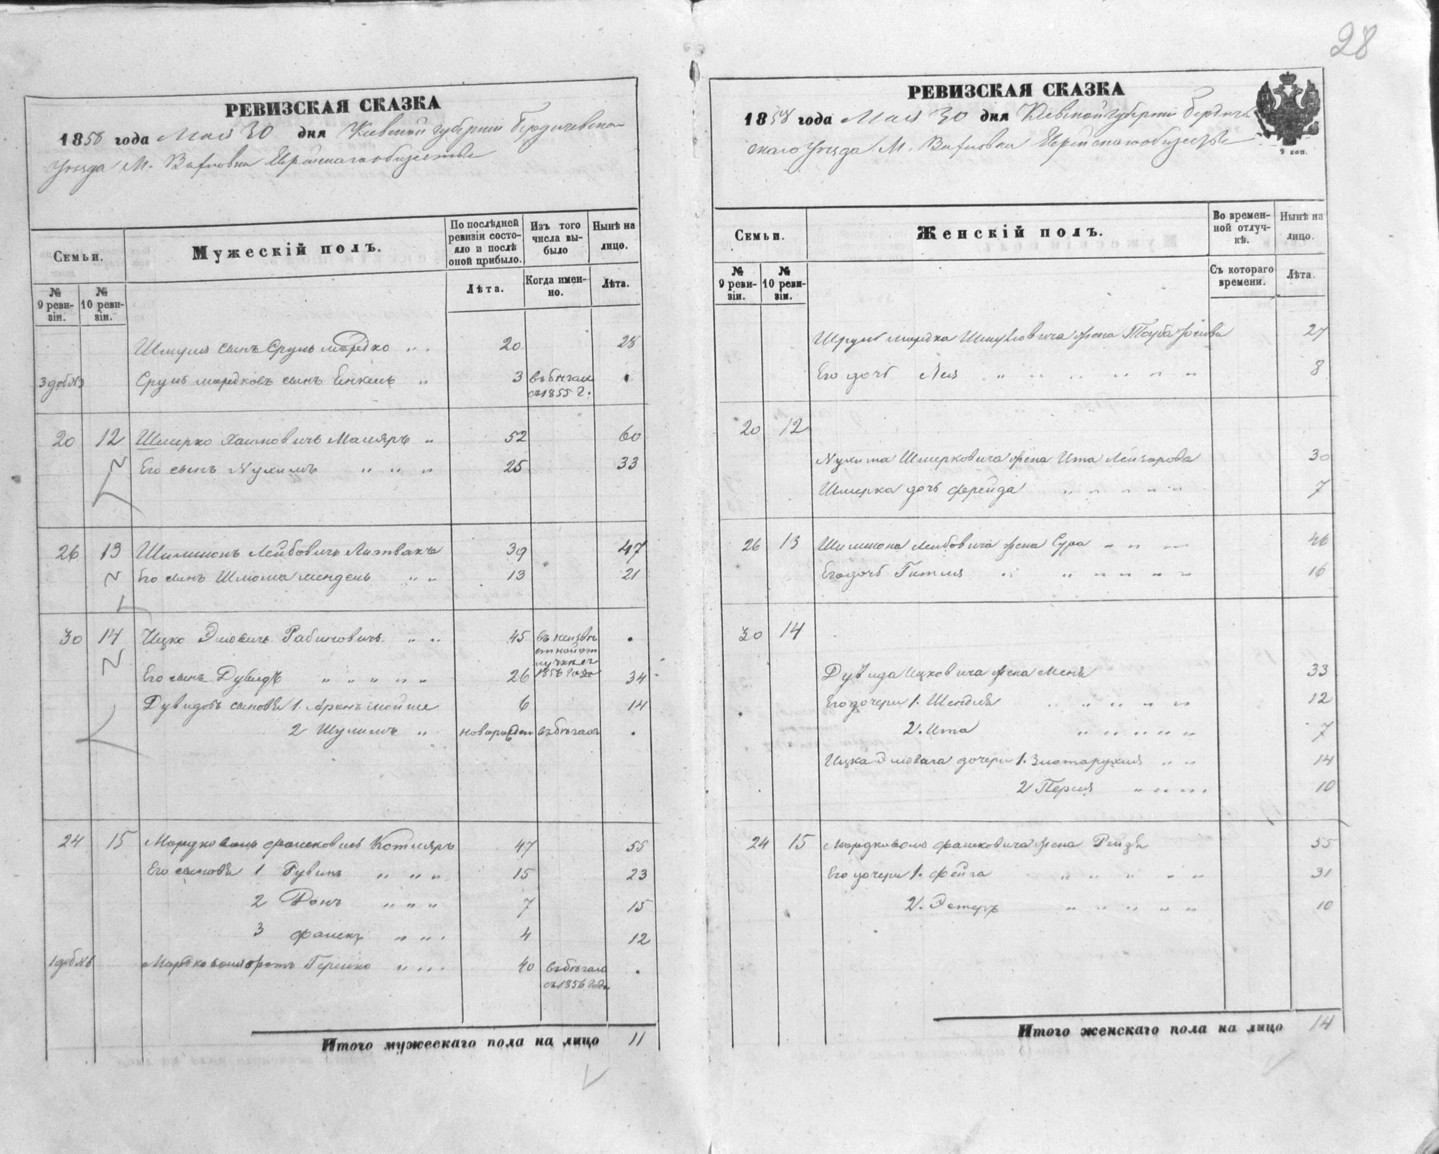 28
РЕВИЗСКАЯ СКАЗКА
1858 года Мая 30 дня Киевской губернии Бердичевска
Уезда М. Вахновки Еврейскаго общества
Семьи.
Мужескій полъ.
По послѣдней ревизіи состояло и послѣ оной прибыло.
Изъ того числа выбыло
Нынѣ на лицо.
№ 9 ревизіи.
№ 10 ревизіи.
Лѣта.
Когда именно.
Лѣта.
Шмуля сынъ Сруль Мордко " " 20 28
Сруль Мордковъ сынъ Енкель " 3 въ бѣгахъ съ 1855 г. •
20 12 Шмерко Хаимовичъ Маляръ " 52 60
Его сынъ Нухимъ " " " 25 33
26 13 Шлимонъ Лейбовичъ Литвакъ 39 47
Его сынъ Шлома Мендель " " 13 21
30 14 Ицко Рабиновичъ " " 45 1856 года •
Его сынъ Дувидъ " " " " " 26 34
Дувидовъ сыновья 1. Аронъ Мойше 6 14
2 Шулимъ " новорожден въ бѣгахъ •
24 15 Котляръ 47 55
Его сыновья 1 Рувинъ " " " 15 23
2 " " " 7 15
3 " " " 4 12
братъ Гершко " " " 40 въ бѣгахъ съ 1856 года •
Итого мужескаго пола на лицо 11
РЕВИЗСКАЯ СКАЗКА
1858 года Мая 30 дня Киевской губернии Бердичев
скаго Уезда М. Вахновки Еврейскаго общества
2 коп.
Семьи.
Женскій полъ.
Во временной отлучкѣ.
Нынѣ на лицо.
№ 9 ревизіи.
№ 10 ревизіи.
Съ котораго времени.
Лѣта.
Мордка Шмулёвича жена Тауба 27
Его дочь Лея " " " " " " " 8
20 12
Нухима Шмерковича жена Ита Лейзорова 30
Шмерка дочь Фрейда " " " " " 7
26 13 Шлимона Лейбовича жена Сура " " " 46
Его дочь Гитля " " " " " " 16
30 14
Дувида Ицковича жена 33
Его дочери 1. Шендля " " " " " 12
2. Ита " " " " " 7
Ицка дочери 1. " " 14
2 Перля " " " " 10
24 15 жена Рейзя 55
Его дочери 1. Фейга " " " " " 31
2. Эстеръ " " " " " 10
Итого женскаго пола на лицо 14